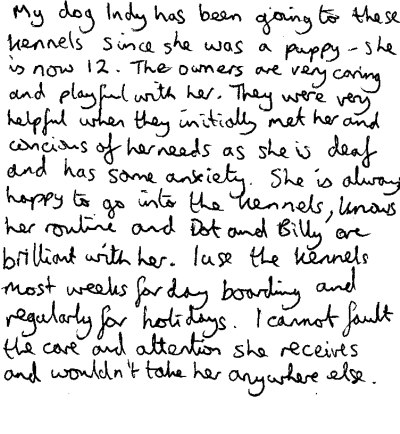 My dog Indy has been going to these
kennels since she was a puppy - she
is now 12. The owners are very caring
and playful with her. They were very
helpful when they initially met her and
concious of her needs as she is deaf
and has some anxiety. She is always
happy to go into the kennels, knows
her routine and Dot and Billy are
brilliant with her. I use the kennels
most weeks for day boarding and
regularly for holidays. I cannot fault
the care and attention she receives
and wouldn't take her anywhere else.